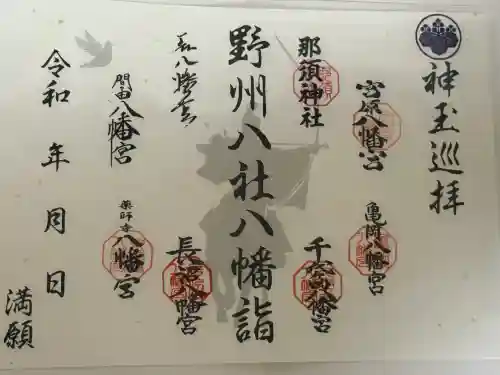 神玉巡拝
宮原八幡宮
亀岡八幡宮
那須神社
千渡八幡宮
野州八社八幡詣
八幡宮
長沼八幡宮
間中八幡宮
薬師寺八幡宮
令和 年 月 日
満願